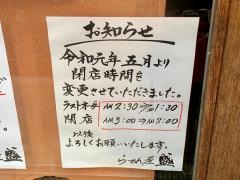 お知らせ
令和元年五月より
閉店時間を
変更させていただきました。
ラストオーダー AM2:30→AM1:30
閉店 AM3:00→AM2:00
よろしくお願いいたします。
らーめん屋